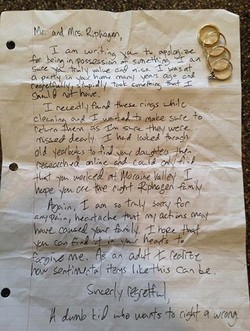 Mr. and Mrs. Rophagen,
I am writing you to apologize
for being in possession of something I am
sure you truly value and miss. I was at
a party in your home many years ago and
regretfully, stupidly took something that I
should not have.
I recently found these rings while
cleaning and I wanted to make sure to
return them as I'm sure they were
missed dearly. I had looked through
old yearbooks to find your daughter then
researched online and could only find
that you worked at Moraine Valley. I
hope you are the right Rophagen family.
Again, I am so truly sorry for
any pain, heartache that my actions may
have caused your family. I hope that
you can find it in your hearts to
forgive me. As an adult I realize
how sentimental items like this can be.
Sincerly regretful,
A dumb kid who wants to right a wrong